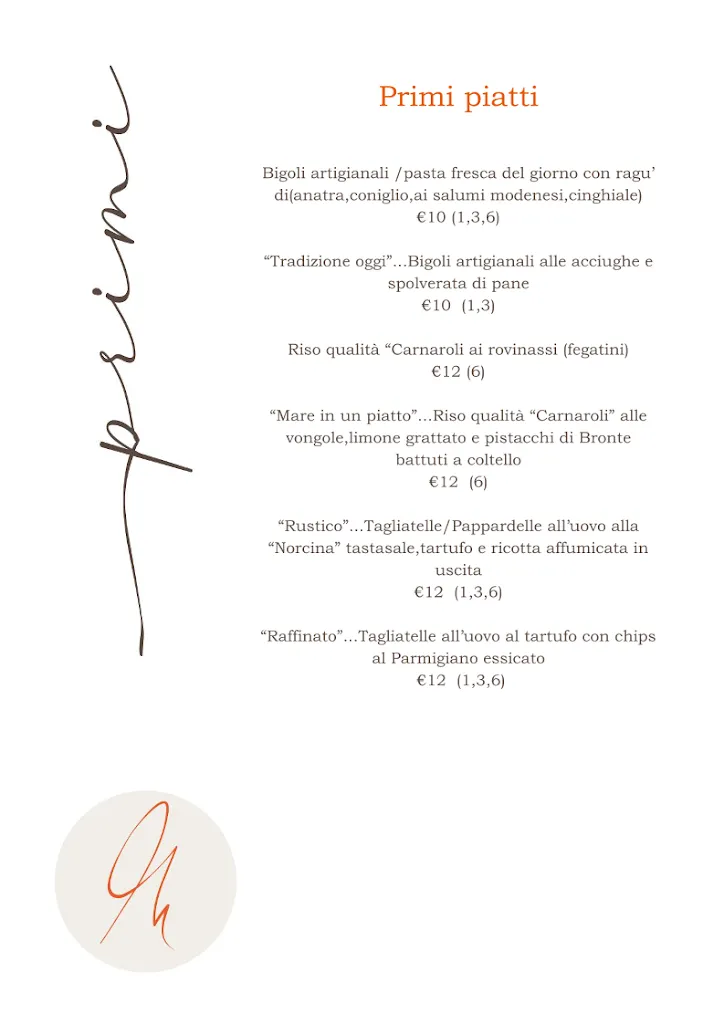 primi
Primi piatti
Bigoli artigianali /pasta fresca del giorno con ragu’
di(anatra,coniglio,ai salumi modenesi,cinghiale)
€10 (1,3,6)
“Tradizione oggi”...Bigoli artigianali alle acciughe e
spolverata di pane
€10 (1,3)
Riso qualità “Carnaroli ai rovinassi (fegatini)
€12 (6)
“Mare in un piatto”...Riso qualità “Carnaroli” alle
vongole,limone grattato e pistacchi di Bronte
battuti a coltello
€12 (6)
“Rustico”...Tagliatelle/Pappardelle all’uovo alla
“Norcina” tastasale,tartufo e ricotta affumicata in
uscita
€12 (1,3,6)
“Raffinato”...Tagliatelle all’uovo al tartufo con chips
al Parmigiano essicato
€12 (1,3,6)